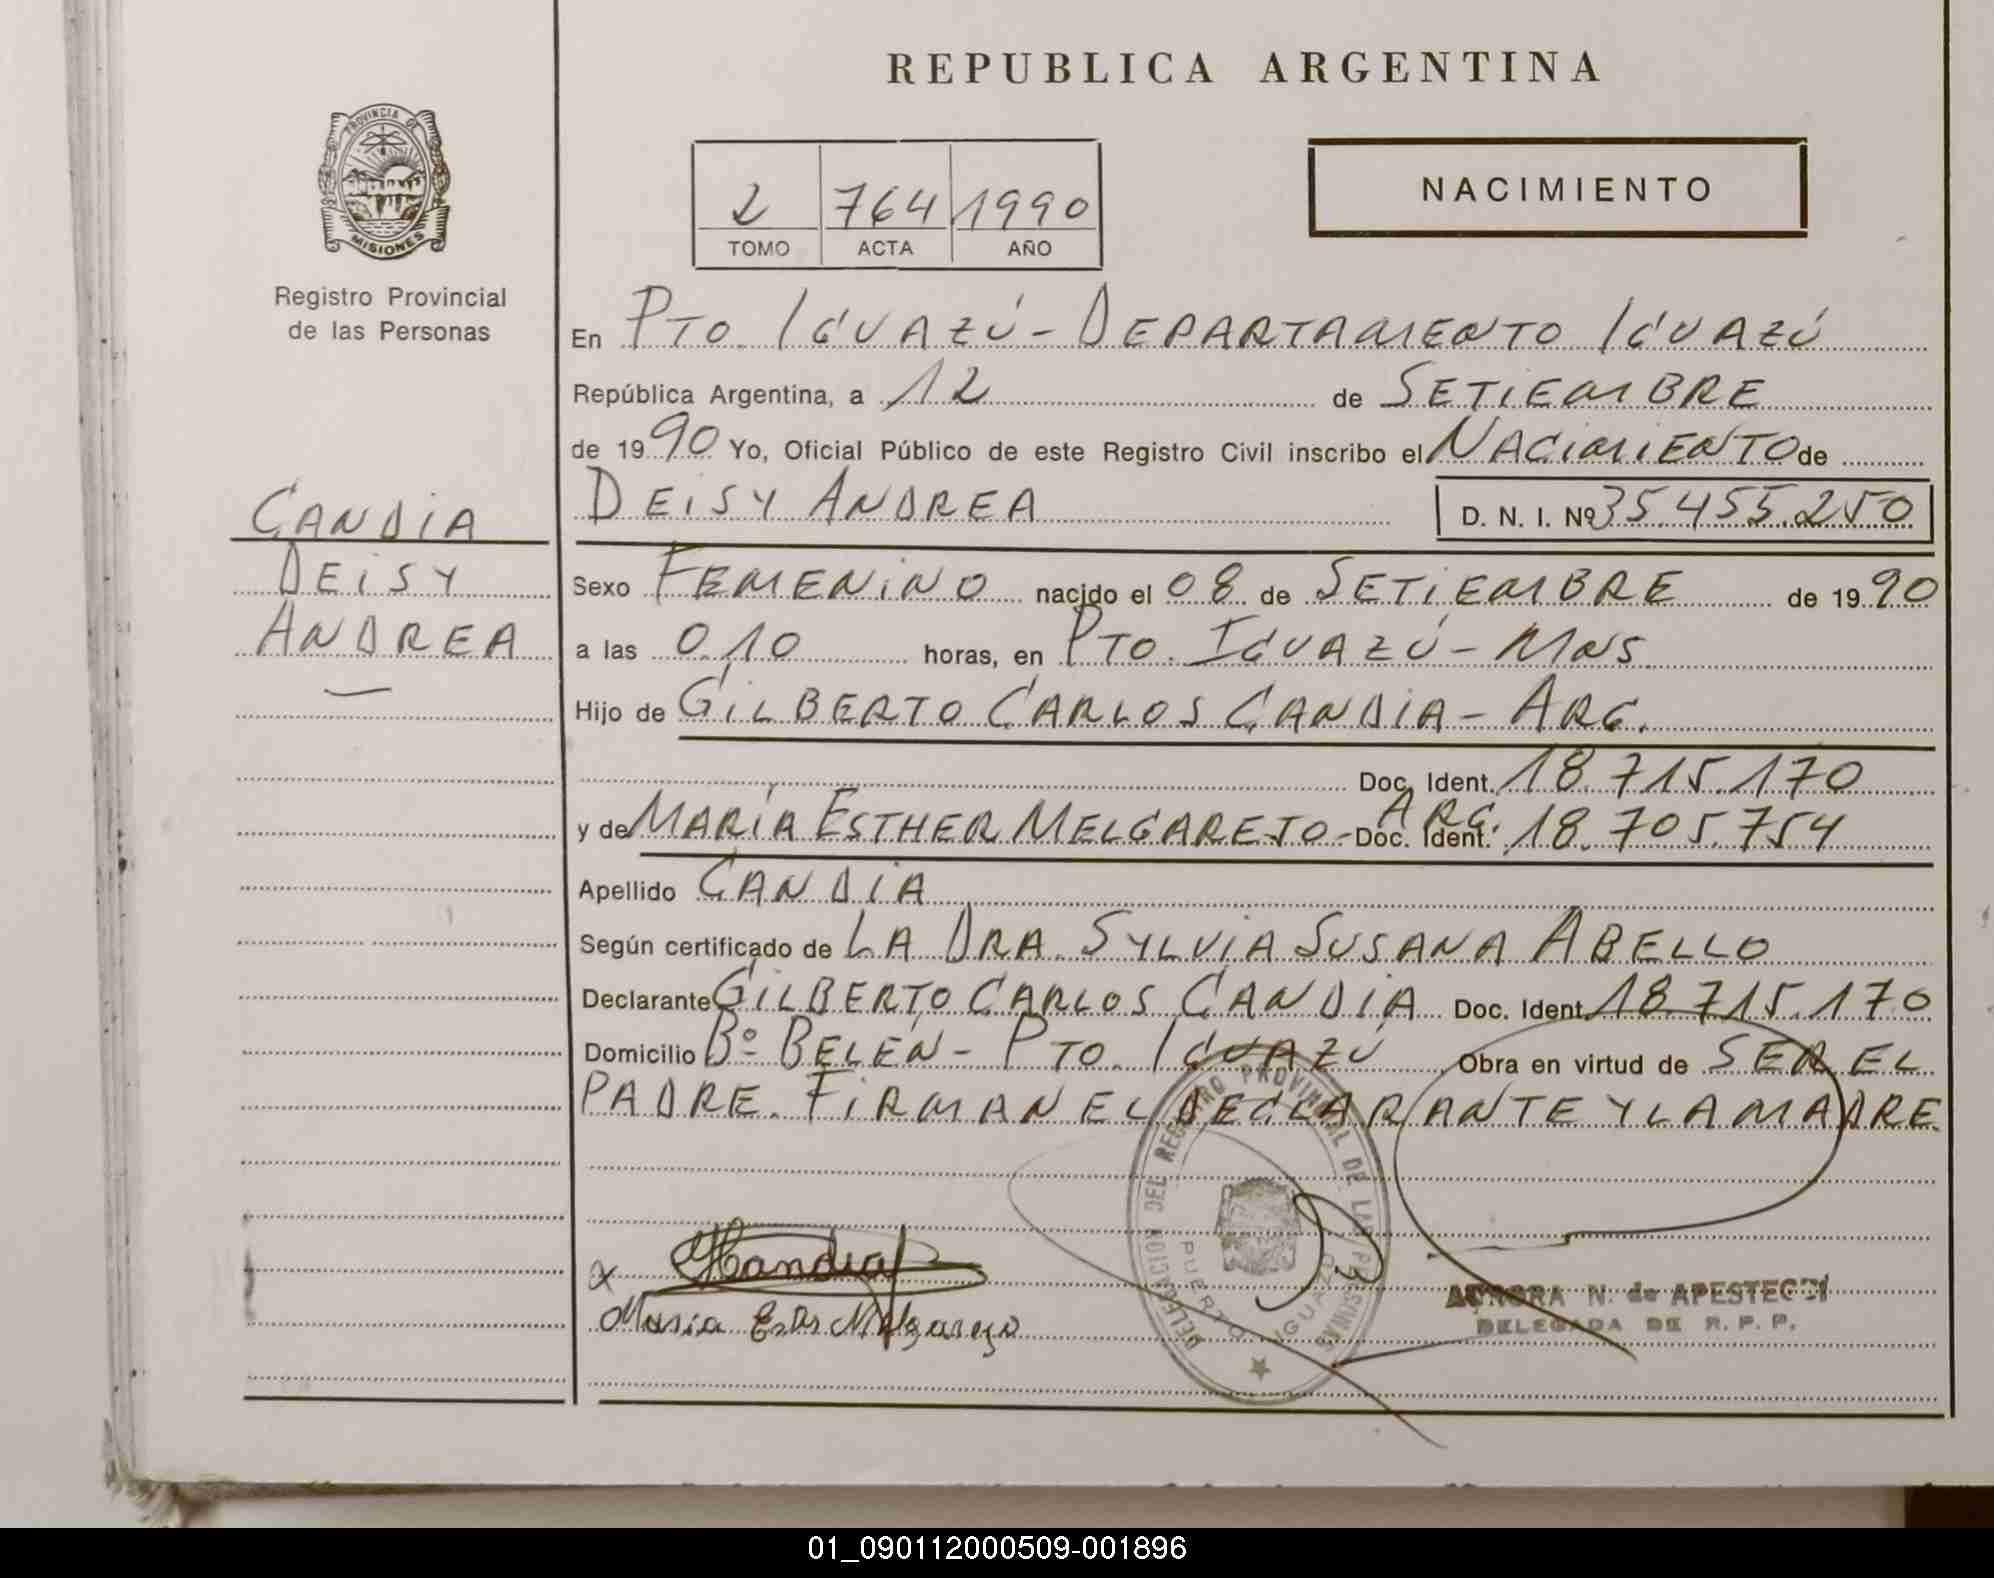 REPUBLICA ARGENTINA
PROVINCIA DE
MISIONES
Registro Provincial
de las Personas
2 764 1990
TOMO ACTA AÑO
NACIMIENTO
En PTO. IGUAZÚ - DEPARTAMENTO IGUAZÚ
República Argentina, a 12 de SETIEMBRE
de 1990 Yo, Oficial Público de este Registro Civil inscribo el NACIMIENTO de
DEISY ANDREA D. N. I. Nº 35.455.250
CANDIA
DEISY
ANDREA
Sexo FEMENINO nacido el 08 de SETIEMBRE de 1990
a las 0.10 horas, en PTO. IGUAZÚ - MNS.
Hijo de GILBERTO CARLOS CANDIA - ARG.
Doc. Ident. 18.715.170
y de MARÍA ESTHER MELGAREJO - ARG. Doc. Ident. 18.705.754
Apellido CANDIA
Según certificado de LA DRA. SYLVIA SUSANA ABELLO
Declarante GILBERTO CARLOS CANDIA Doc. Ident. 18.715.170
Domicilio Bº BELÉN - PTO. IGUAZÚ Obra en virtud de SER EL
PADRE. FIRMAN EL DECLARANTE Y LA MADRE.
DELEGACION DEL REGISTRO PROVINCIAL DE LAS PERSONAS
PUERTO IGUAZU
x Candia
Maria Melgarejo
AURORA N. de
DELEGADA DE R. P. P.
01_090112000509-001896